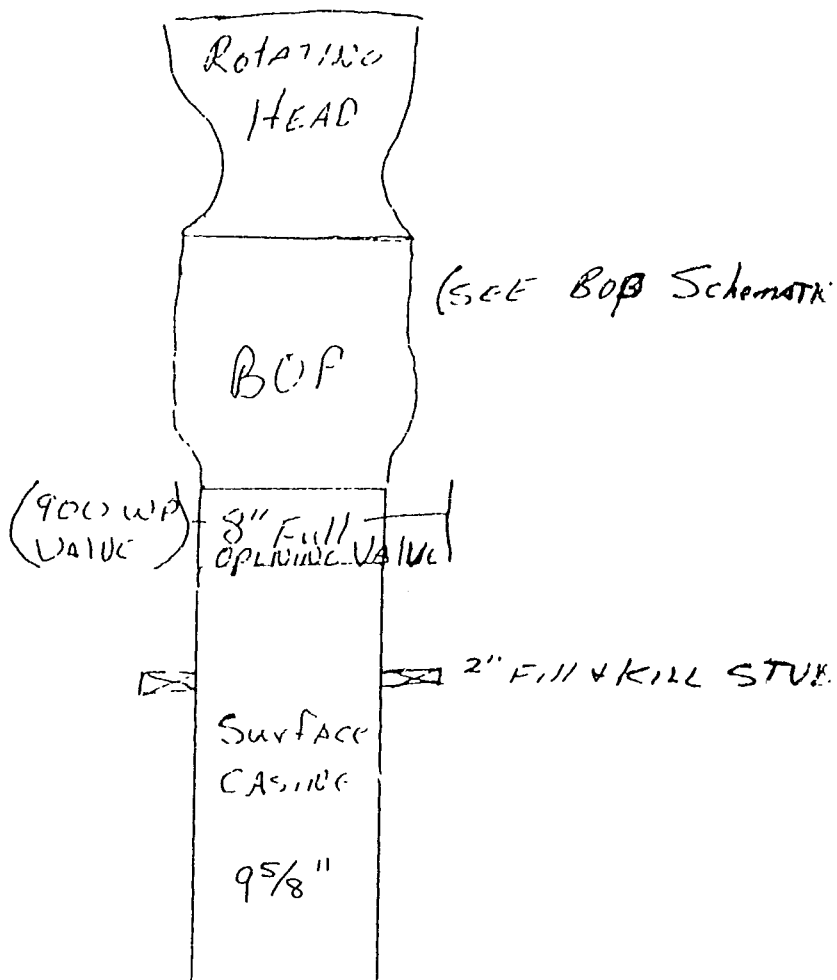 ROTATING
HEAD
(SEE BOP Schematic
BOP
(900 WP
VALVE)
8" Full
OPENING VALVE
2" Fill & KILL STUB
Surface
CASING
9 5/8"